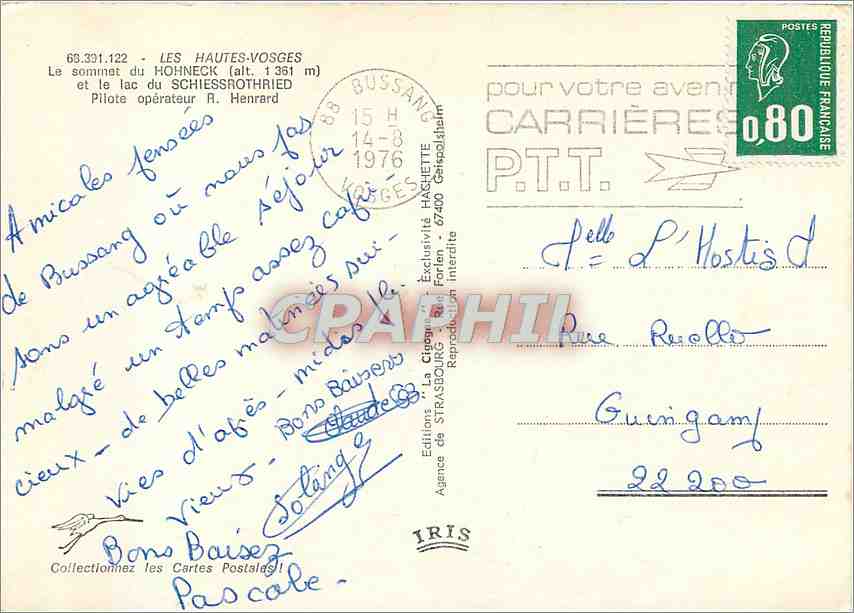 68.391.122 - LES HAUTES-VOSGES
Le sommet du HOHNECK (alt. 1 361 m)
et le lac du SCHIESSROTHRIED
Pilote opérateur R. Henrard
Amicales pensées
de Bussang où nous pas
sons un agréable séjour
malgré un temps assez capri-
cieux - de belles matinées sui-
vies d'après-midas plu
vieux -
Bons Baisers
Claude
Solange
Bons Baisez
Pascale -
Collectionnez les Cartes Postales!
IRIS
Editions "La Cigogne" - Exclusivité HACHETTE
Agence de STRASBOURG - Rue Forlen - 67400 Geispolsheim
Reproduction interdite
88 BUSSANG
15 H
14-8
1976
VOSGES
pour votre aven
CARRIÈRES
P.T.T.
POSTES
REPUBLIQUE FRANÇAISE
0,80
Melle L'Hostis J
Rue Ruello
Guingamp
22 200
CPAPHIL